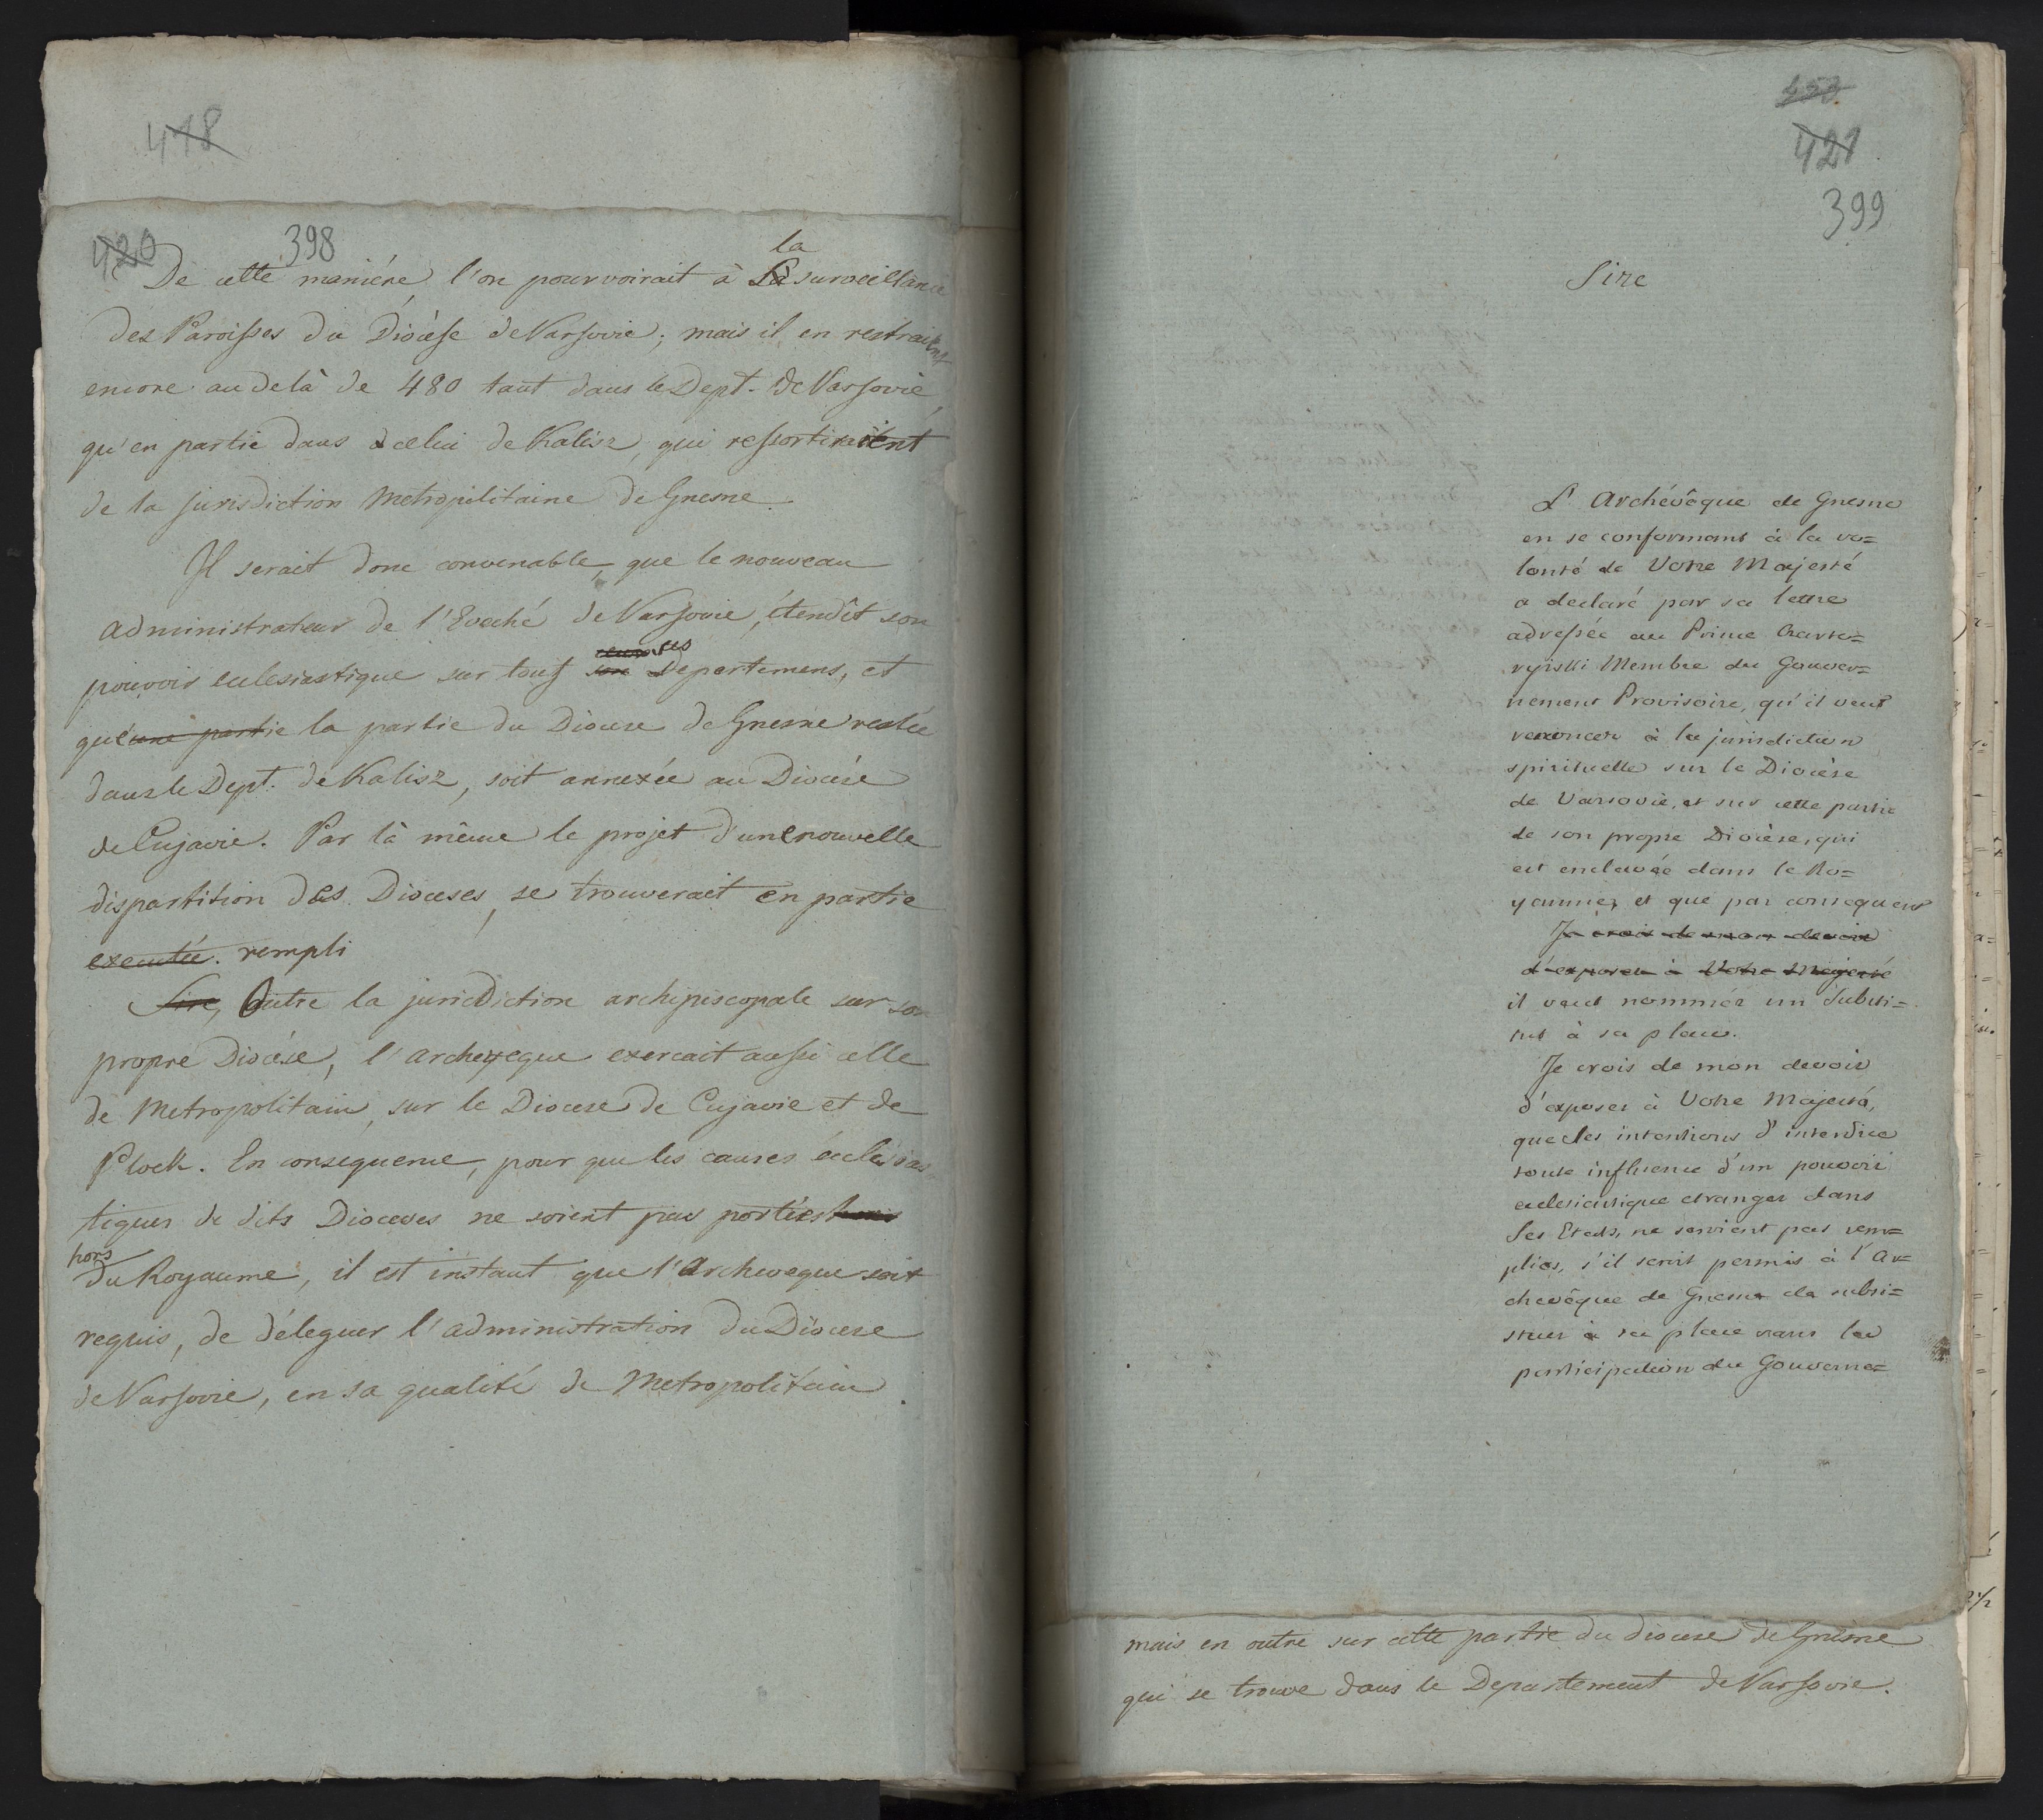 418
420
398
De cette maniére l'on pourvoirait à la surveillance
des Paroisses du Diocése de Varsovie; mais il en restraient
encore au delà de 480 tant dans le Dept. de Varsovie
qu'en partie dans celui de Kalisz, qui ressortiraient
de la jurisdiction Metropilitaine de Gnesne.
Il serait donc convenable, que le nouveau
administrateur de l'Eveché de Varsovie, étendît son
ces
pouvoir eclesiastique sur tous son Departemens, et
que une partie la partie du Diocese de Gnesne restée
dans le Dept. de Kalisz, soit annexée au Diocése
de Cujavie. Par là même le projet d'une nouvelle
dispartition des Dioceses, se trouverait en partie
executée. rempli
Sire, Outre la jurisdiction archipiscopale sur son
propre Diocése, l'archeveque exercait aussi celle
de Metropolitain, sur le Diocese de Cujavie et de
Plock. En consequence, pour que les causes éclesias
tiques de dits Dioceses ne soient pas portées hors
hors
du Royaume, il est instant que l'Archeveque soit
requis, de déleguer l'administration du Diocese
de Varsovie, en sa qualité de Metropolitain.
421
399
Sire
L'Archévêque de Gnesne
en se conformant à la vo=
lonté de Votre Majesté
a declaré par sa lettre
adressée au Prince Czarto=
ryiski Membre du Gouver=
nement Provisoire, qu'il veut
renoncer à la jurisdiction
spirituelle sur le Diocèse
de Varsovie, et sur cette partie
de son propre Diocèse, qui
est enclavée dans le Ro=
yaume, et que par consequent
Je crois de mon devoir
d'exposer à Votre Majesté
il veut nommér un Substi=
tut à sa place.
Je crois de mon devoir
d'exposer à Votre Majesté,
que les intentions d'interdire
toute influence d'un pouvoir
eclesiastique etranger dans
Ses Etats, ne seroient pas rem=
plies, s'il serait permis à l'Ar=
chevêque de Gnesne de substi=
tuer à sa place sans la
participation du Gouverne=
mais en outre sur cette partie du diocese de Gnesne
qui se trouve dans le Departement de Varsovie.